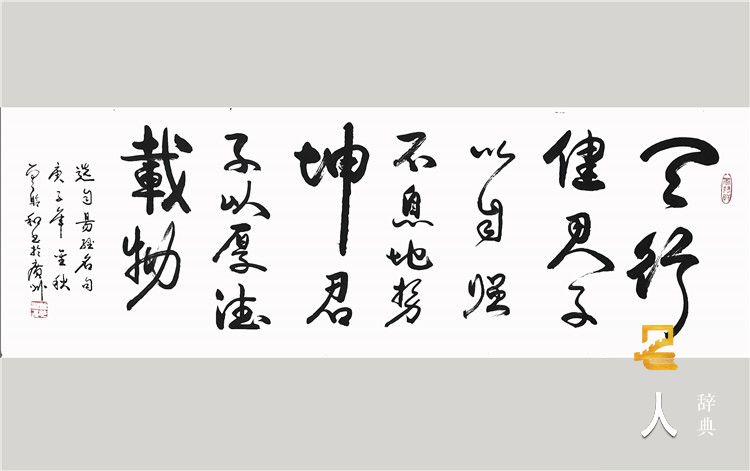 天行
健君子
以自强
不息地势
坤君
子以厚德
載物
易經名句
庚子年金秋
和書於廣州
人
辞典